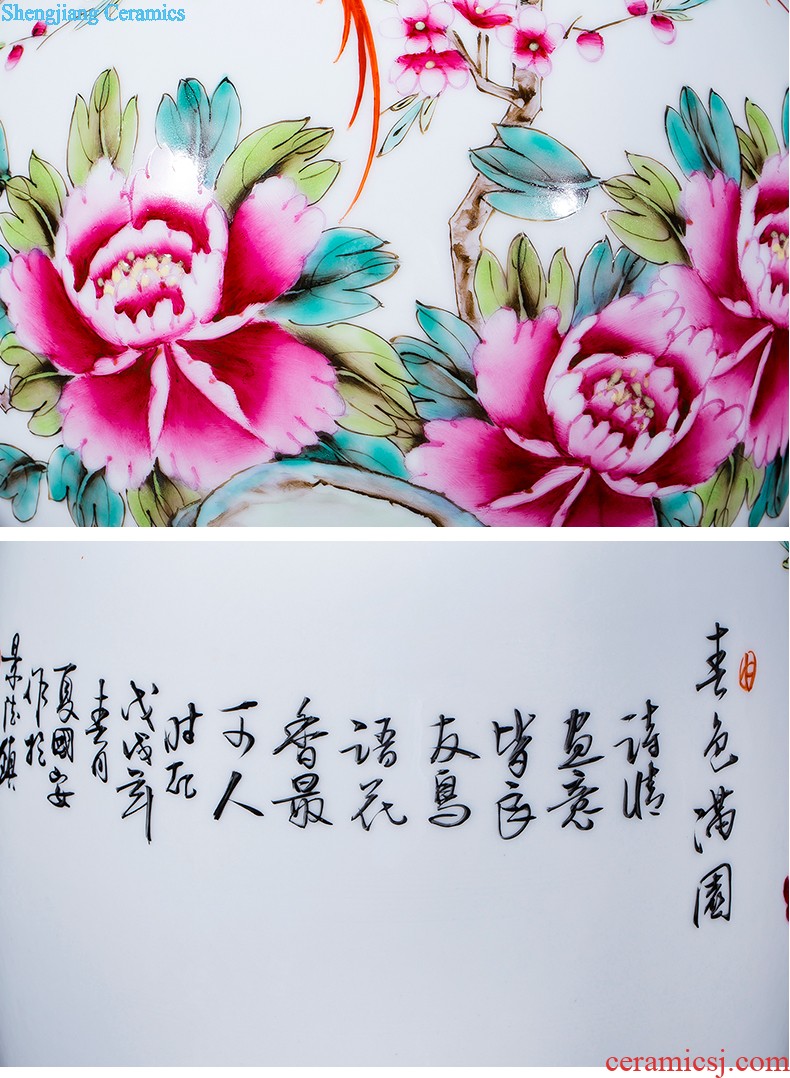 Shengjiang Ceramics
春色满園
詩情
画意
皆良
友鳥
語花
香最
可人
时在
戊戌年
春月
夏國安
作於
景德鎮
ceramicsj.com